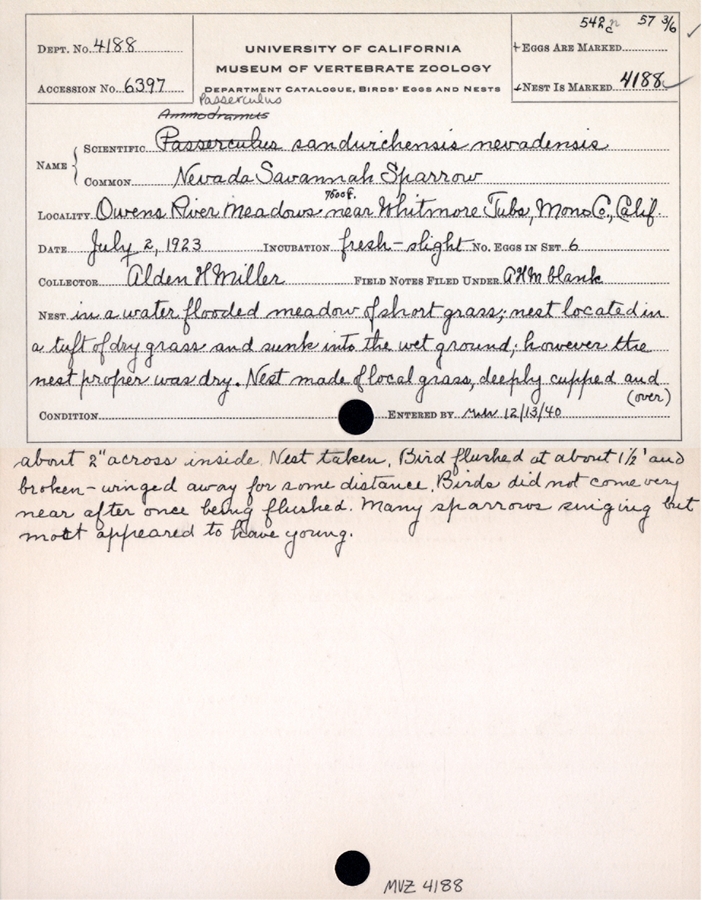 542c 57 3/6 ✓
DEPT. NO. 4188
UNIVERSITY OF CALIFORNIA
+EGGS ARE MARKED
MUSEUM OF VERTEBRATE ZOOLOGY
ACCESSION NO. 6397
DEPARTMENT CATALOGUE, BIRDS' EGGS AND NESTS
+NEST IS MARKED 4188 ✓
Passerculus
Ammodramus
NAME { SCIENTIFIC Passerculus sandwichensis nevadensis
COMMON Nevada Savannah Sparrow
7500 f.
LOCALITY Owens River Meadows near Whitmore Tubs, Mono Co., Calif.
DATE July 2, 1923 INCUBATION fresh-slight NO. EGGS IN SET 6
COLLECTOR Alden H Miller FIELD NOTES FILED UNDER AHM blank
NEST in a water flooded meadow of short grass; nest located in
a tuft of dry grass and sunk into the wet ground; however the
nest proper was dry. Nest made of local grass, deeply cupped and
(over)
CONDITION ENTERED BY 12/13/40
about 2" across inside. Nest taken. Bird flushed at about 1½' and
broken-winged away for some distance. Birds did not come very
near after once being flushed. Many sparrows singing but
most appeared to have young.
MVZ 4188